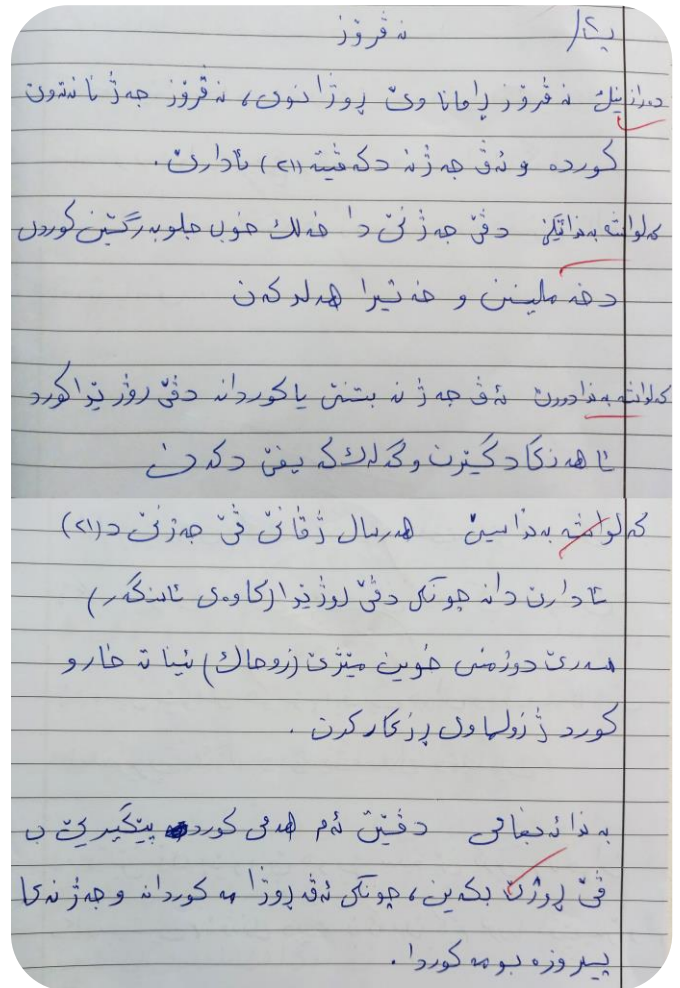 پ٢/ نەڤرۆز
دەرازینك نەڤرۆز ڕامانا وێ ڕوژا نوی، نەڤرۆز جەژنا نەتەوێ
کوردە و ئەڤ جەژنە دکەڤیتە (٢١) ئادارێ.
کەلواشە بەندا ئێکێ دڤێ جەژنێ دا خەلك خوب جلوبەرگێن کوردی
دخەملینن و خەتیرا هەلدکەن
کەلواشە بەندا دووێ ئەڤ جەژنە بتنێ یا کوردانە دڤێ رۆژێدا کورد
ئاهەنگا دگێرن و گەلەك کەیفێ دکەن
کەلواشە بەندا سیێ هەرسال ژڤانێ ڤێ جەژنێ د(٢١)
ئادارێ دانە چونکی دڤێ لوژێدا (کاوەی ئاسنگەر)
سەرێ دوژمنێ خوین مێژێ (زوحاك) ئینا تە خارو
کورد ژ زولما وی ڕزگارکرن.
بەندا ئەدبیاتی دڤێت ئەم هەمی کورد پێگیریێ ب
ڤێ ڕوژێ بکەین، چونکی ئەڤ ڕوژا مە کوردانە و جەژنەکا
پیروزە بو مە کوردا.